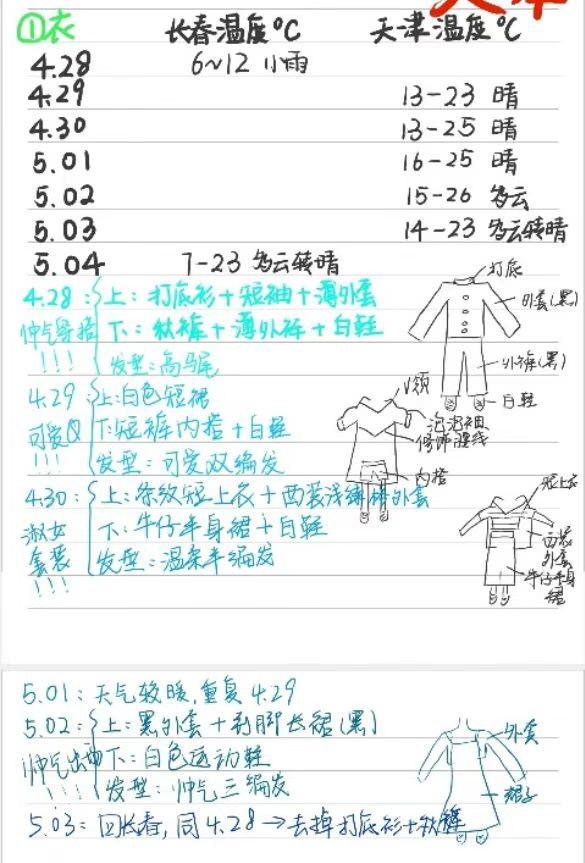 ①衣 长春温度°C 天津温度°C
4.28 6~12 小雨
4.29 13-23 晴
4.30 13-25 晴
5.01 16-25 晴
5.02 15-26 多云
5.03 14-23 多云转晴
5.04 7-23 多云转晴
打底
4.28：上：打底衫+短袖+薄外套
外套(黑)
帅气穿搭 下：秋裤+薄外裤+白鞋
!!! 发型：高马尾
外裤(黑)
白鞋
4.29 上:白色短裙
V领
可爱Q 下:短裤内搭+白鞋
泡泡袖
修饰腰线
!!! 发型：可爱双编发
内搭
4.30：上：条纹短上衣+西装浅绿外套
短上衣
淑女 下：牛仔半身裙+白鞋
西装
外套
套装 发型：温柔半编发
牛仔半身
裙
!!!
5.01：天气较暖,重复4.29
5.02：上：黑外套+到脚长裙(黑)
外套
帅气出 下：白色运动鞋
!!! 发型：帅气三编发
裙子
5.03：回长春,同4.28→去掉打底衫+秋裤